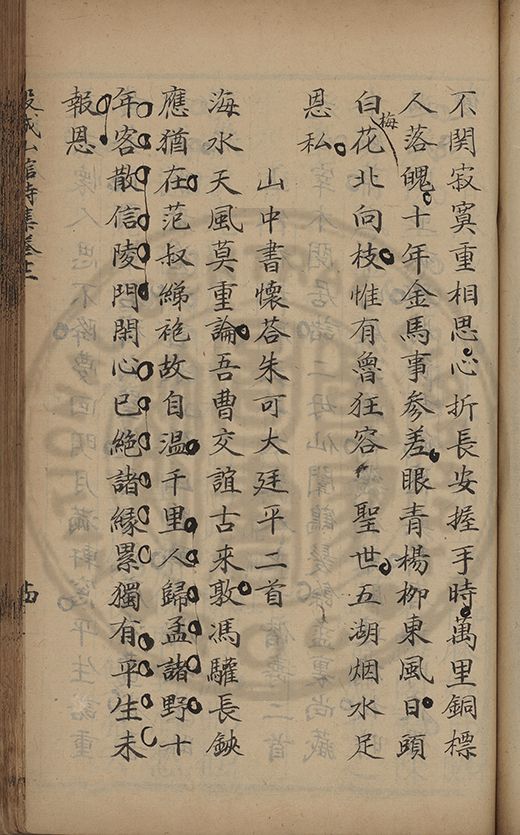 不関寂寞重相思心折長安握手時萬里銅標
人落魄十年金馬事參差眼青楊柳東風日頭
白花北向枝惟有魯狂容聖世五湖烟水足
梅
恩私
山中書懷荅朱可大廷平二首
海水天風莫重論吾曹交誼古來敦馮驩長鋏
應猶在范叔綈袍故自温千里人歸孟諸野十
年客散信陵門閑心已絶諸縁累獨有平生未
報恩